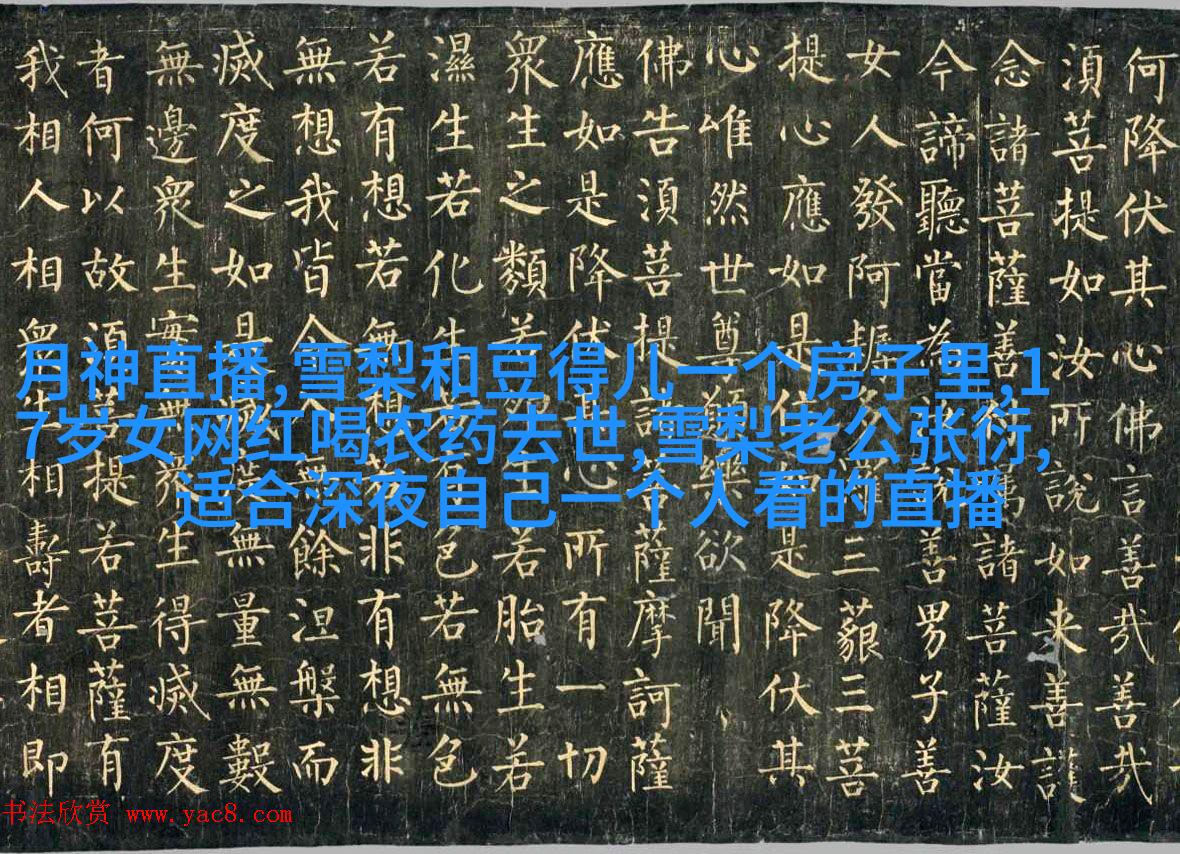 何降伏其心佛言善哉善哉
須菩提如汝所說如来善護
念諸菩薩善付囑諸菩薩汝
今諦聽當為汝說善男子善
女人發阿耨多羅三藐三菩
提心應如是住如是降伏其
心唯然世尊願樂欲聞
佛告須菩提諸菩薩摩訶薩
應如是降伏其心所有一切
眾生之類若卵生若胎生若
濕生若化生若有色若無色
若有想若無想若非有想非
無想我皆令入無餘涅槃而
滅度之如是滅度無量無數
無邊眾生實無眾生得滅度
者何以故須菩提若菩薩有
我相人相眾生相壽者相即
月神直播,雪梨和豆得儿一个房子里,1
7岁女网红喝农药去世,雪梨老公张衍,
适合深夜自己一个人看的直播
书法欣赏 www.yac8.com